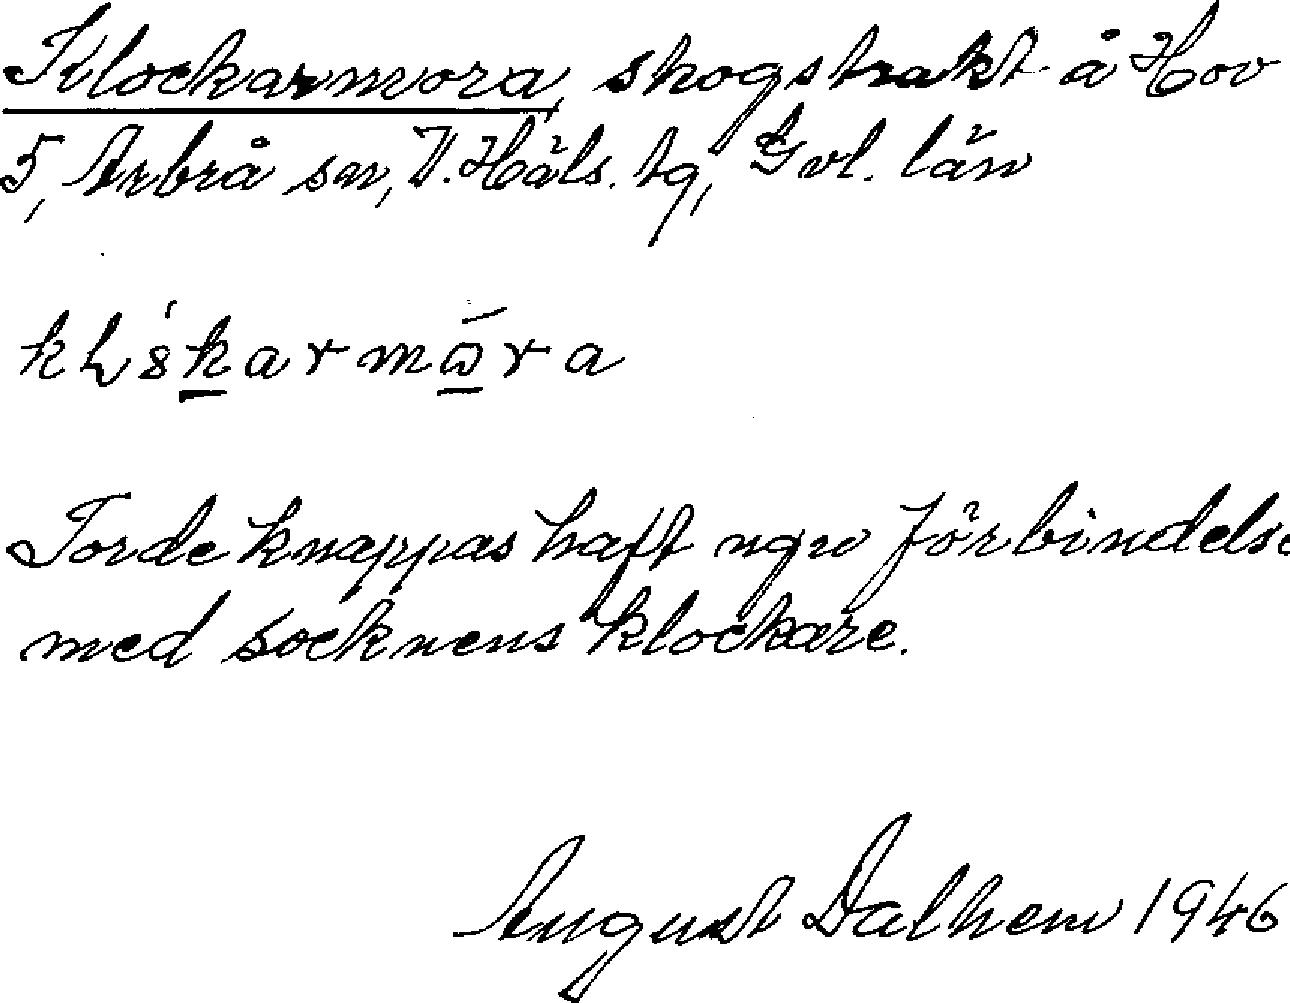 Klockarmora, skogstrakt å Hov
5, Arbrå sn, V. Häls. tg, Gvl. län
Torde knappas haft ngn förbindelse
med socknens klockare.
August Dalhem 1946